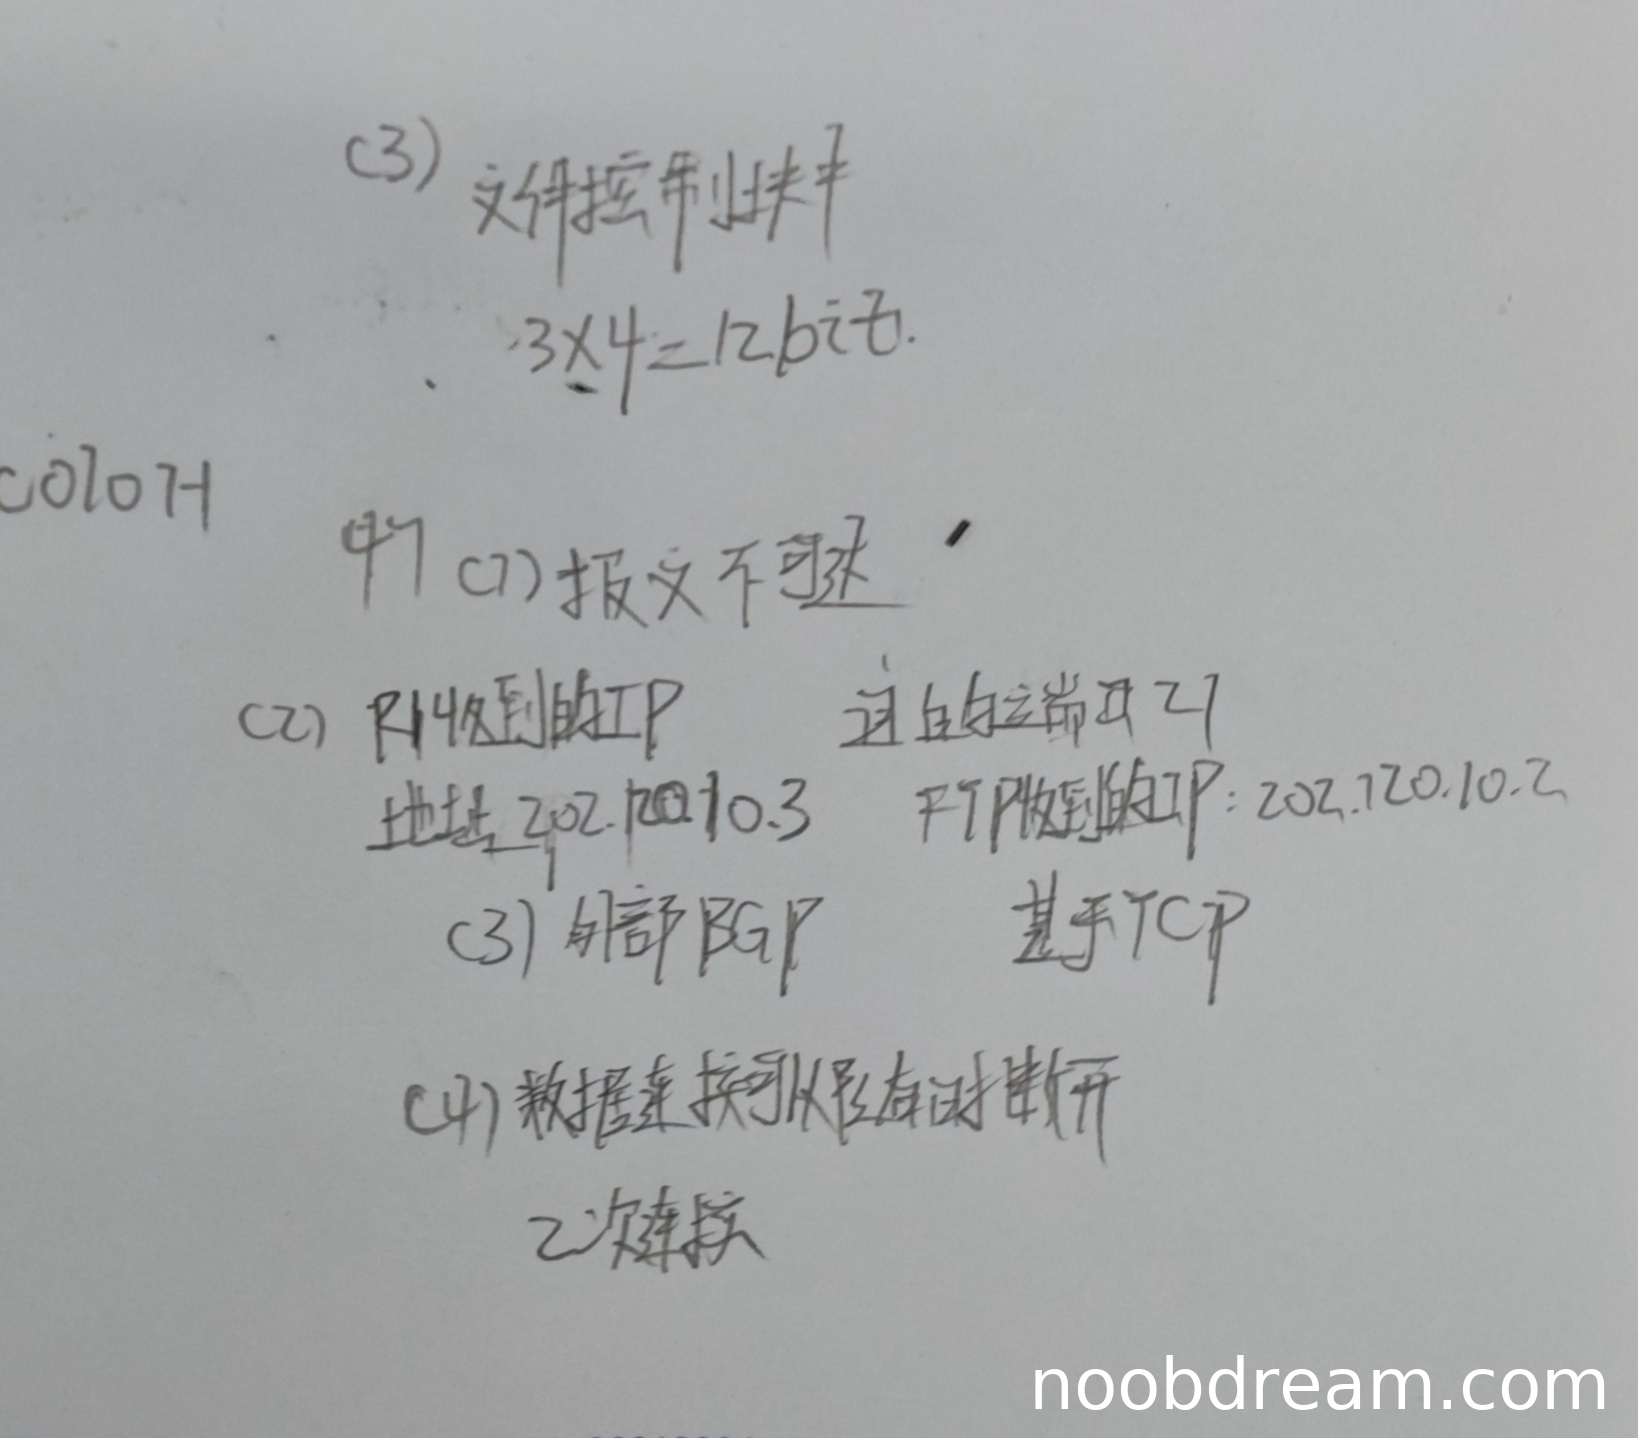 (3) 文件控制块中
3×4=12bit.
C010H
47 (1) 报文不可达
(2) R1收到的IP 目的端口21
地址 202.120.10.3 FTP收到的IP: 202.120.10.2
(3) 外部BGP 基于TCP
(4) 数据连接可以随时断开
2次连接
noobdream.com